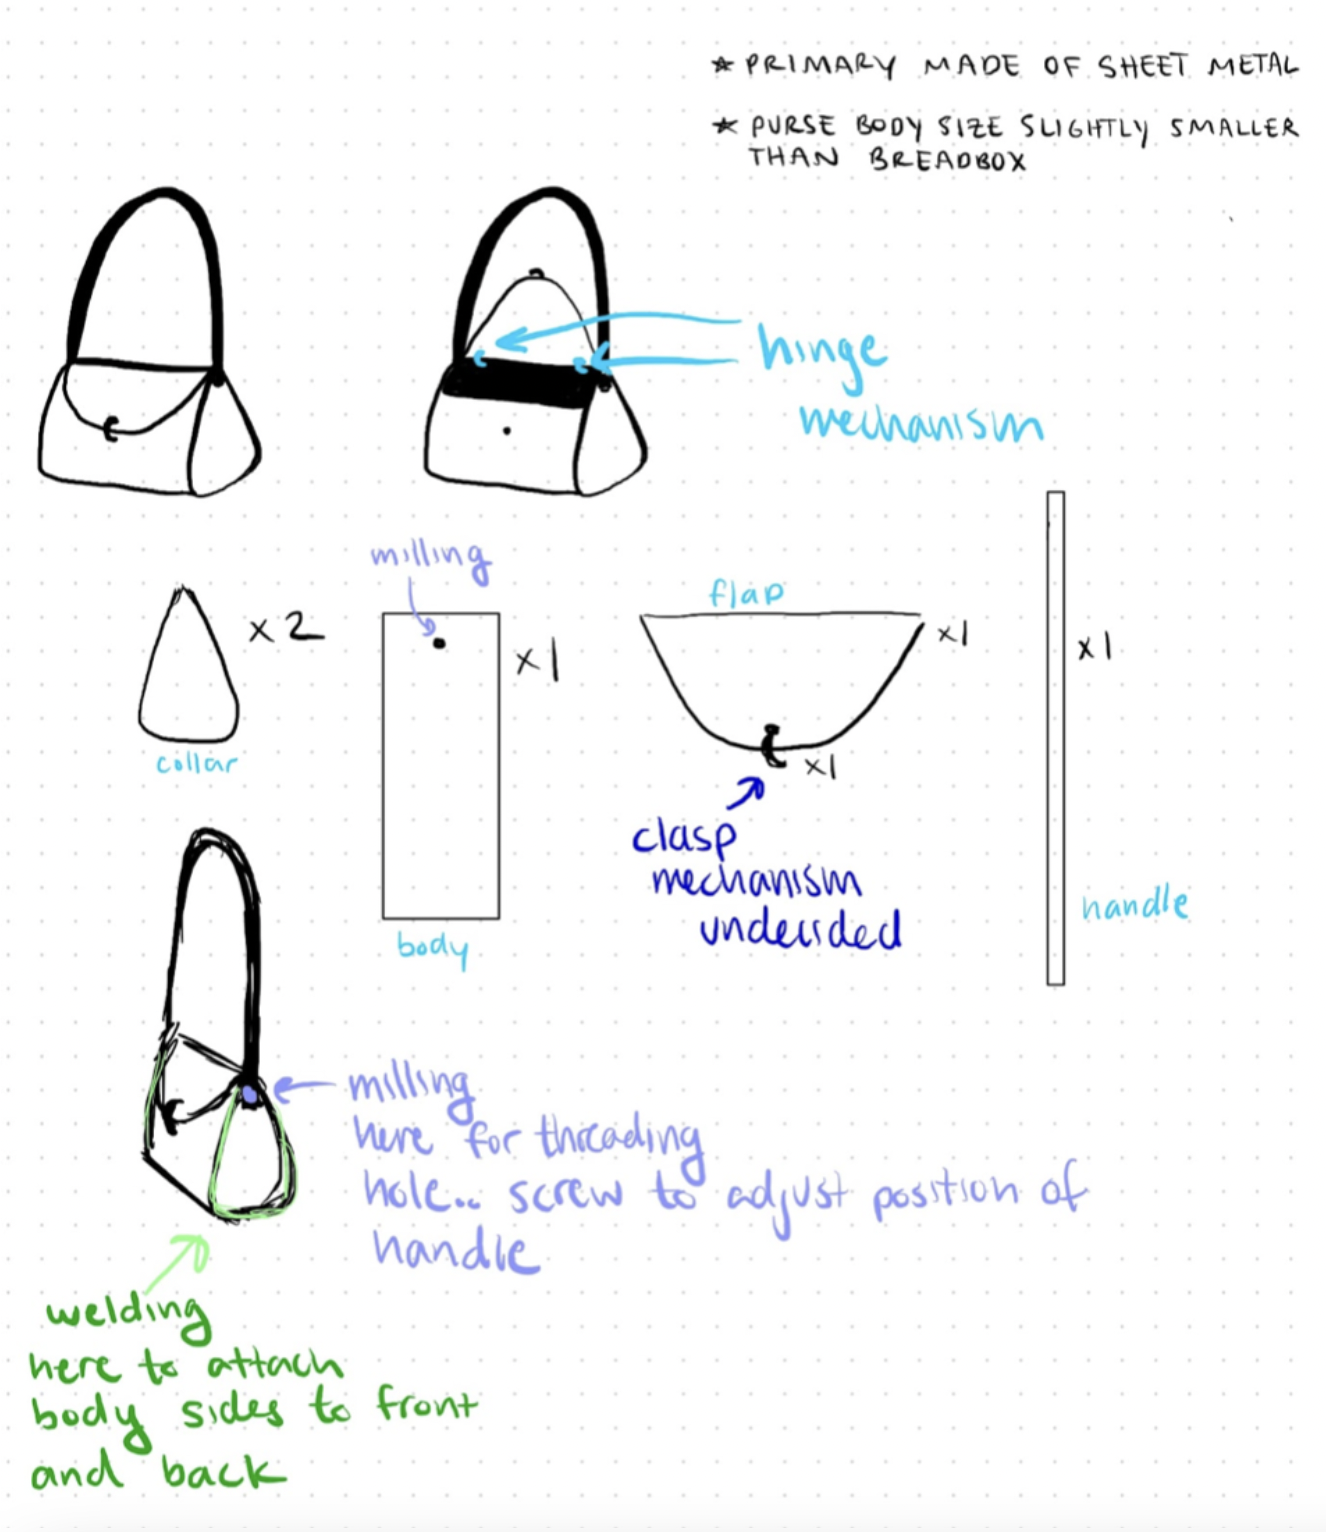 * PRIMARY MADE OF SHEET METAL
* PURSE BODY SIZE SLIGHTLY SMALLER
THAN BREADBOX
hinge
mechanism
milling
x2
collar
x1
body
flap
x1
x1
clasp
mechanism
undecided
x1
handle
milling
here for threading
hole.. screw to adjust position of
handle
welding
here to attach
body sides to front
and back